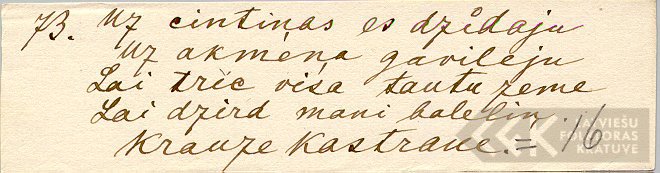 73. Uz cintiņas es dzīdaju
Uz akmėņa gavilėju
Lai trīc visa tautu zeme
Lai dzird mani balėliņ.
Krauze Kastrane. = 16
LATVIEŠU
FOLKLORAS
KRĀTUVE